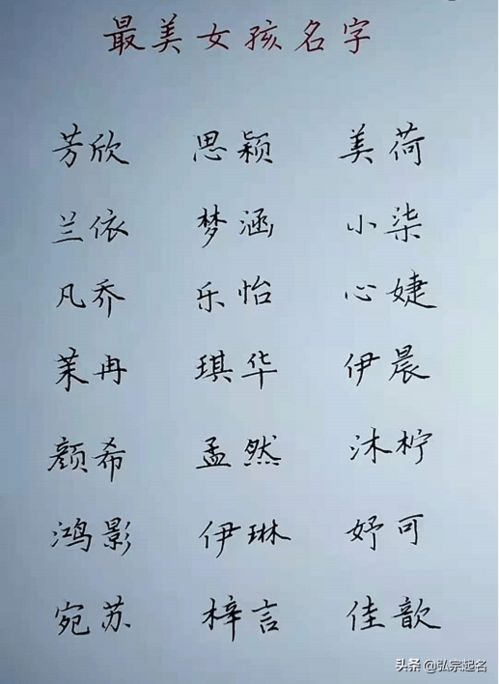 最美女孩名字
芳欣 思颖 美荷
兰依 梦涵 小柒
凡乔 乐怡 心婕
茉冉 琪华 伊晨
颜希 孟然 沐柠
鸿影 伊琳 妤可
宛苏 梓言 佳歆
头条 @弘宗起名